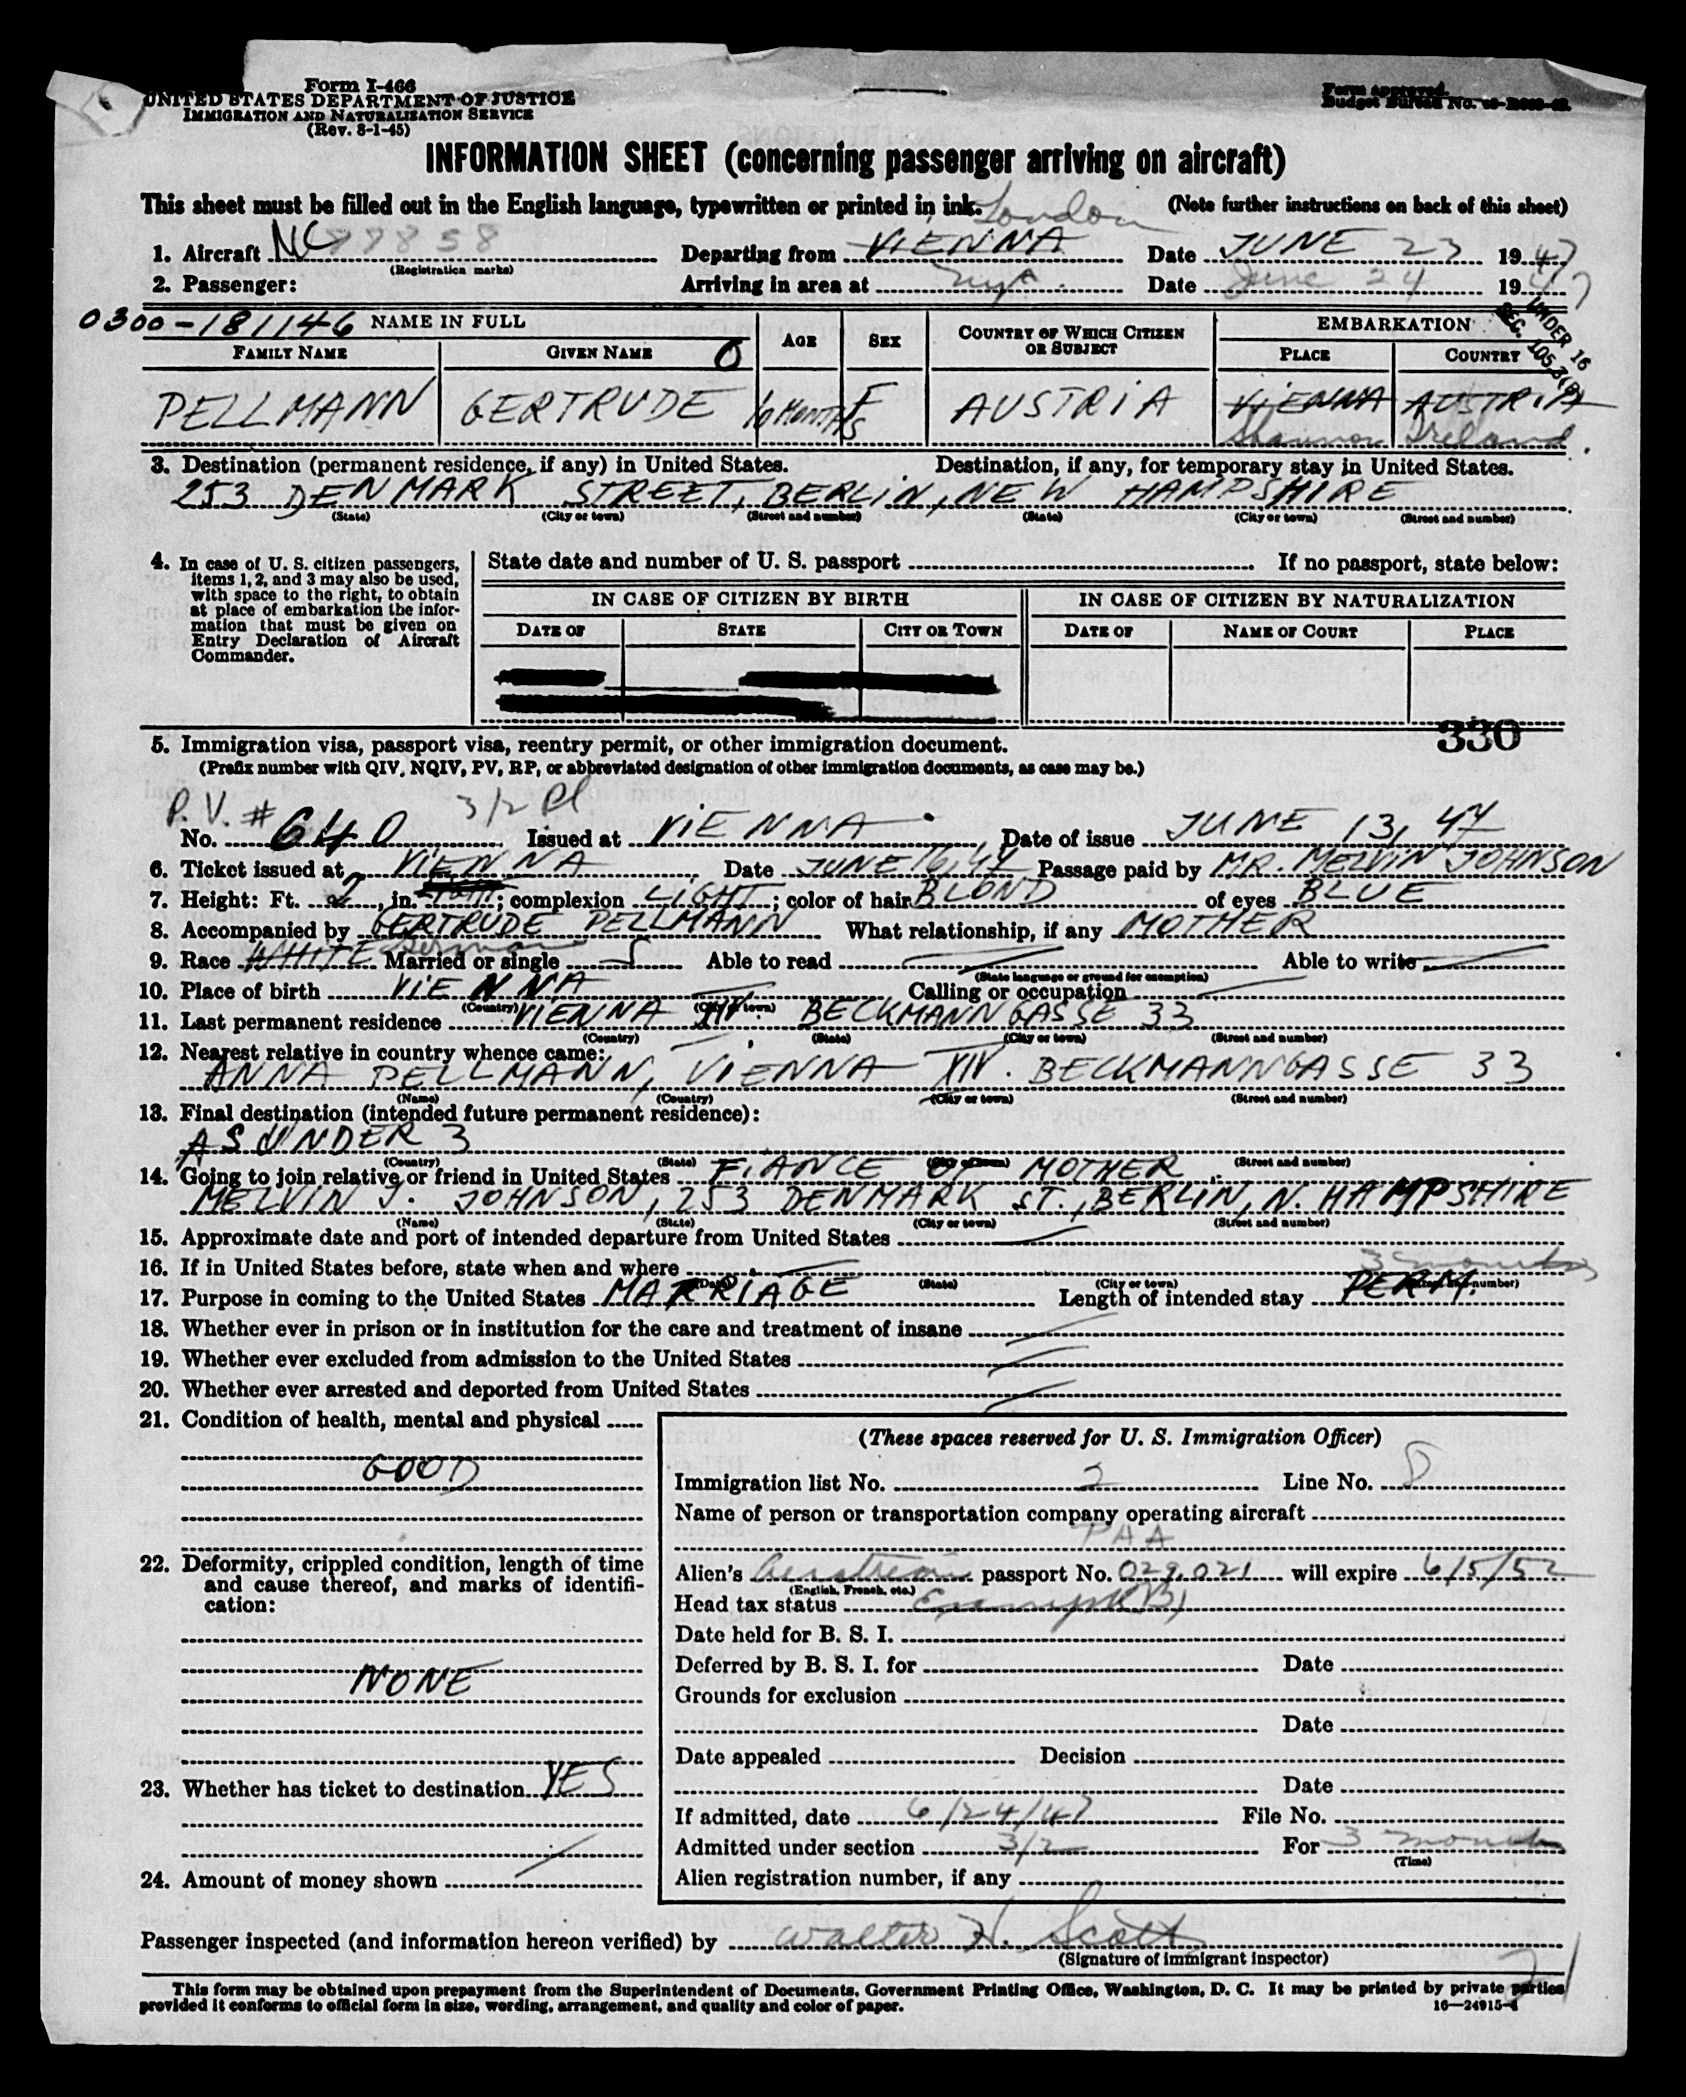 Form I-466
UNITED STATES DEPARTMENT OF JUSTICE
IMMIGRATION AND NATURALIZATION SERVICE
(Rev. 8-1-45)
Form approved.
Budget Bureau No.
INFORMATION SHEET (concerning passenger arriving on aircraft)
This sheet must be filled out in the English language, typewritten or printed in ink. (Note further instructions on back of this sheet)
London
1. Aircraft NC 88858 Departing from VIENNA Date JUNE 23 1947
(Registration marks)
2. Passenger: Arriving in area at NYC Date June 24 1947
0300-181146 NAME IN FULL AGE SEX COUNTRY OF WHICH CITIZEN OR SUBJECT EMBARKATION
UNDER 16
SEC. 105.3(B)
FAMILY NAME GIVEN NAME O PLACE COUNTRY
PELLMANN GERTRUDE 10 MONTHS F AUSTRIA VIENNA AUSTRIA
Shannon Ireland
3. Destination (permanent residence, if any) in United States. Destination, if any, for temporary stay in United States.
253 DENMARK STREET, BERLIN, NEW HAMPSHIRE
(State) (City or town) (Street and number) (State) (City or town) (Street and number)
4. In case of U. S. citizen passengers, items 1, 2, and 3 may also be used, with space to the right, to obtain at place of embarkation the information that must be given on Entry Declaration of Aircraft Commander.
State date and number of U. S. passport If no passport, state below:
IN CASE OF CITIZEN BY BIRTH IN CASE OF CITIZEN BY NATURALIZATION
DATE OF STATE CITY OR TOWN DATE OF NAME OF COURT PLACE
330
5. Immigration visa, passport visa, reentry permit, or other immigration document.
(Prefix number with QIV, NQIV, PV, RP, or abbreviated designation of other immigration documents, as case may be.)
P. V. # 3/2 Pl
No. 640 Issued at VIENNA Date of issue JUNE 13, 47
6. Ticket issued at VIENNA Date JUNE 16, 47 Passage paid by MR. MELVIN JOHNSON
7. Height: Ft. 2, in. ; complexion LIGHT; color of hair BLOND of eyes BLUE
8. Accompanied by GERTRUDE PELLMANN What relationship, if any MOTHER
9. Race WHITE German Married or single S Able to read Able to write
(State language or ground for exemption)
10. Place of birth VIENNA Calling or occupation
(Country) (City or town)
11. Last permanent residence VIENNA XIV. BECKMANNGASSE 33
(Country) (State) (City or town) (Street and number)
12. Nearest relative in country whence came:
ANNA PELLMANN, VIENNA XIV. BECKMANNGASSE 33
(Name) (Country) (City or town) (Street and number)
13. Final destination (intended future permanent residence):
AS UNDER 3
(Country) (State) (City or town) (Street and number)
14. Going to join relative or friend in United States FIANCE OF MOTHER
MELVIN J. JOHNSON, 253 DENMARK ST., BERLIN, N. HAMPSHIRE
(Name) (State) (City or town) (Street and number)
15. Approximate date and port of intended departure from United States
16. If in United States before, state when and where
(Date) (State) (City or town) (Street and number)
3 months
17. Purpose in coming to the United States MARRIAGE Length of intended stay PERM.
18. Whether ever in prison or in institution for the care and treatment of insane
19. Whether ever excluded from admission to the United States
20. Whether ever arrested and deported from United States
21. Condition of health, mental and physical
GOOD
22. Deformity, crippled condition, length of time and cause thereof, and marks of identification:
NONE
23. Whether has ticket to destination YES
24. Amount of money shown
(These spaces reserved for U. S. Immigration Officer)
Immigration list No. 2 Line No. 8
Name of person or transportation company operating aircraft
PAA
Alien's Austrian passport No. 029.021 will expire 6/5/52
(English, French, etc.)
Head tax status Exempt (B)
Date held for B. S. I.
Deferred by B. S. I. for Date
Grounds for exclusion
Date
Date appealed Decision
Date
If admitted, date 6/24/47 File No.
Admitted under section 3/2 For 3 months
(Time)
Alien registration number, if any
Passenger inspected (and information hereon verified) by Walter H. Scott
(Signature of immigrant inspector)
This form may be obtained upon prepayment from the Superintendent of Documents, Government Printing Office, Washington, D. C. It may be printed by private parties
provided it conforms to official form in size, wording, arrangement, and quality and color of paper. 16—24915-1